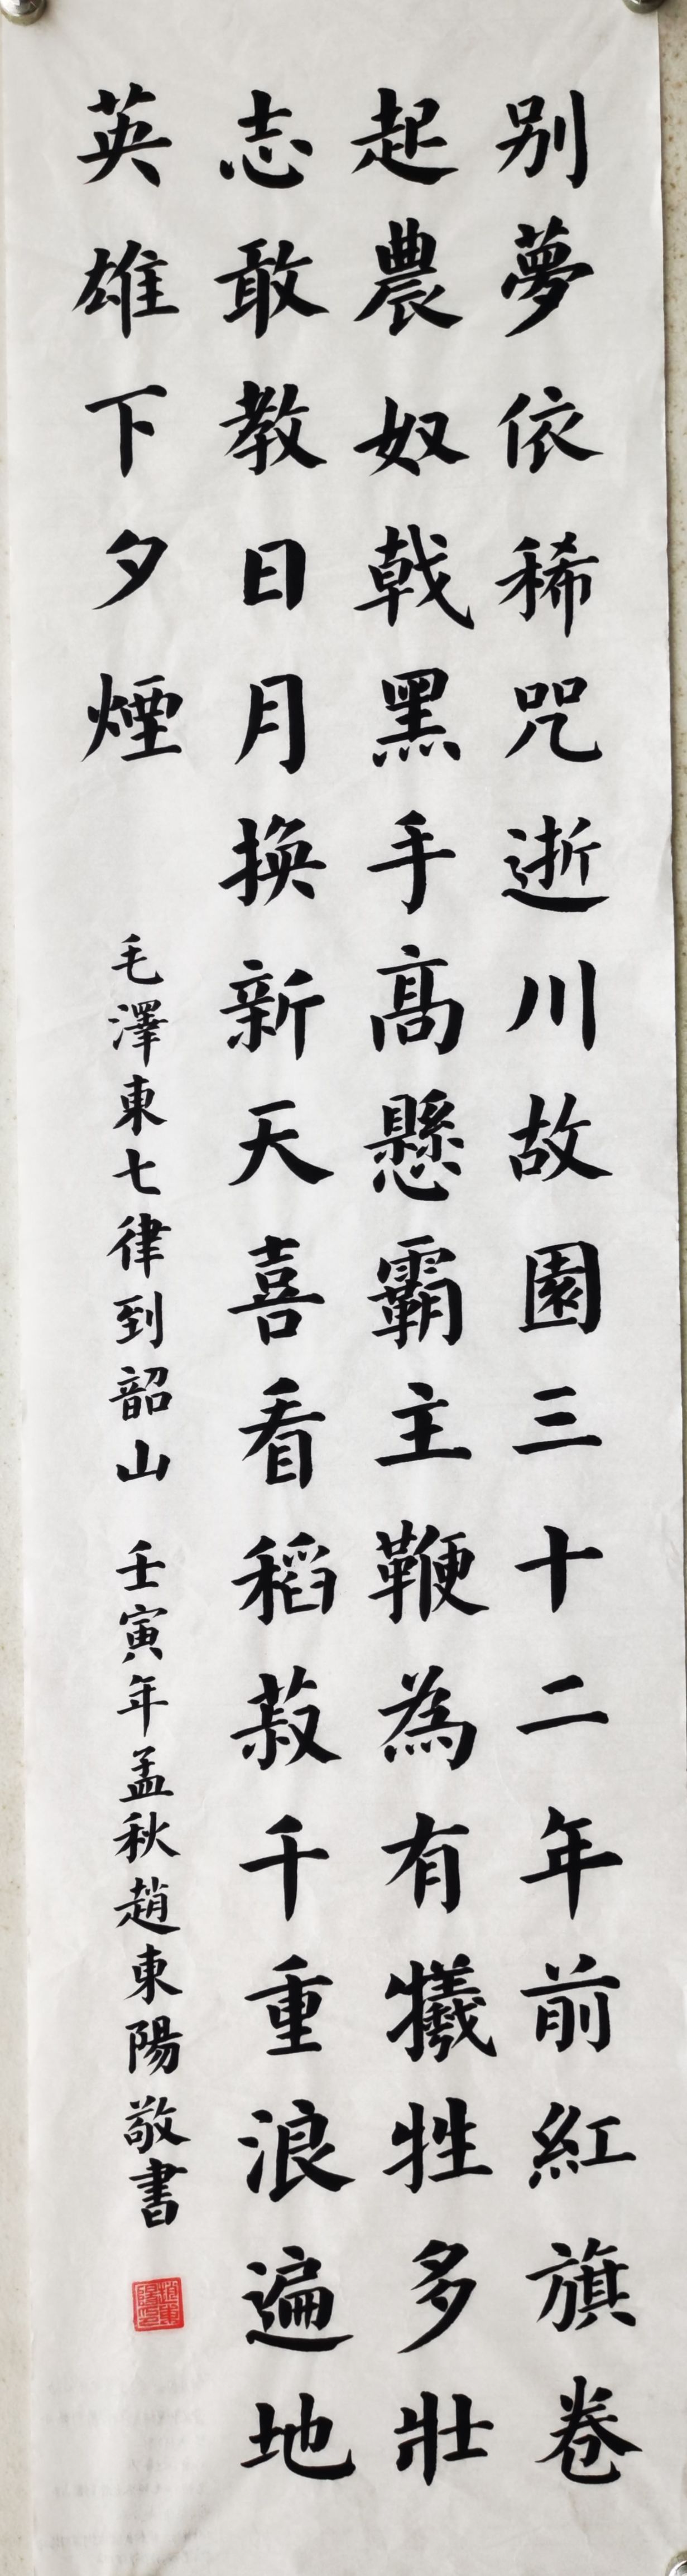 别夢依稀咒逝川故園三十二年前紅旗卷
起農奴戟黑手高懸霸主鞭為有犧牲多壯
志敢教日月換新天喜看稻菽千重浪遍地
英雄下夕煙
毛澤東七律到韶山 壬寅年孟秋趙東陽敬書